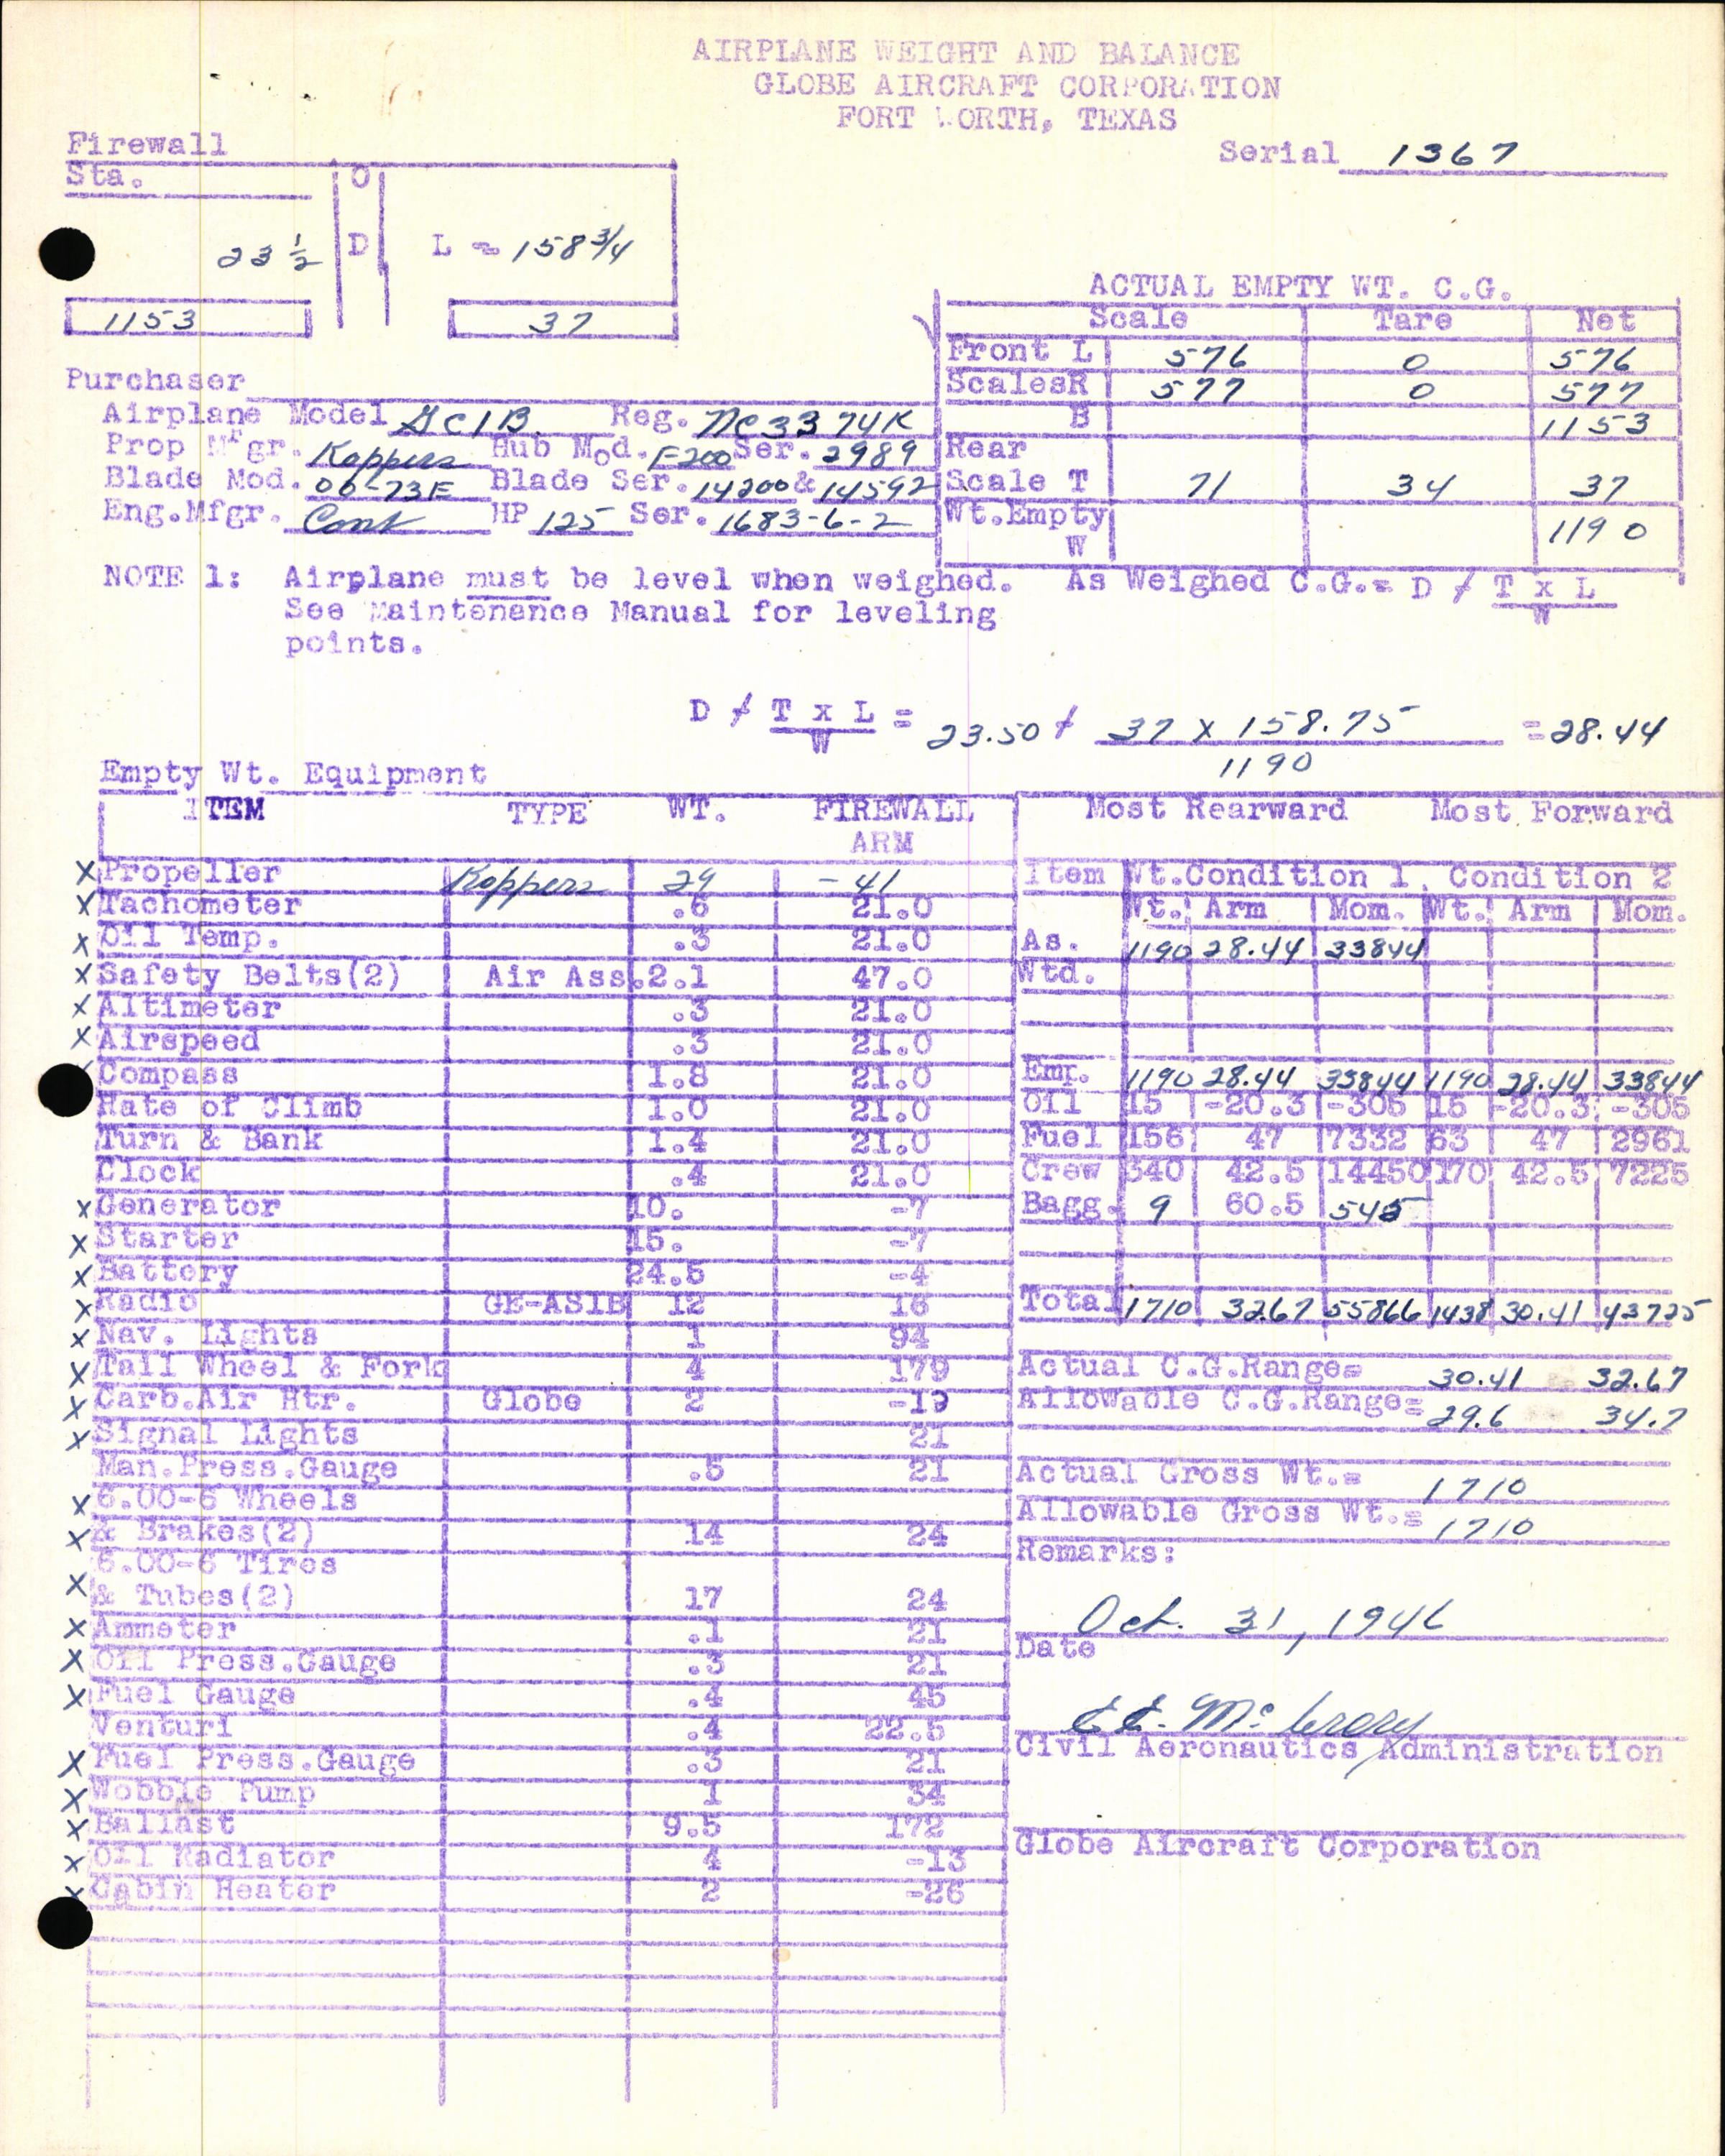 AIRPLANE WEIGHT AND BALANCE
GLOBE AIRCRAFT CORPORATION
FORT WORTH, TEXAS
Serial 1367
Firewall
Sta.
O
23 1/2 D L = 158 3/4
1153 37
ACTUAL EMPTY WT. C.G.
Scale Tare Net
Front L 576 0 576
Scales R 577 0 577
B 1153
Rear
Scale T 71 34 37
Wt.Empty
W 1190
Purchaser
Airplane Model GC1B. Reg. NC3374K
Prop Mfgr. Koppers Hub Mod. F200 Ser. 2989
Blade Mod. 00-73E Blade Ser. 14200 & 14592
Eng.Mfgr. Cont HP 125 Ser. 1683-6-2
NOTE 1: Airplane must be level when weighed.
See Maintenance Manual for leveling
points.
As Weighed C.G.= D / T x L
W
D / T x L = 23.50 / 37 X 158.75 = 28.44
W 1190
Empty Wt. Equipment
ITEM TYPE WT. FIREWALL
ARM
X Propeller Koppers 29 -41
X Tachometer .6 21.0
X Oil Temp. .3 21.0
X Safety Belts(2) Air Ass. 2.1 47.0
X Altimeter .3 21.0
X Airspeed .3 21.0
Compass 1.8 21.0
Rate of Climb 1.0 21.0
Turn & Bank 1.4 21.0
Clock .4 21.0
X Generator 10. -7
X Starter 15. -7
X Battery 24.5 -4
X Radio GE-AS1B 12 16
X Nav. Lights 1 94
X Tail Wheel & Fork 4 179
X Carb.Air Htr. Globe 2 -19
X Signal Lights 21
Man.Press.Gauge .5 21
X 6.00-6 Wheels
X & Brakes(2) 14 24
6.00-6 Tires
X & Tubes(2) 17 24
X Ammeter .1 21
X Oil Press.Gauge .3 21
X Fuel Gauge .4 45
Venturi .4 22.5
X Fuel Press.Gauge .3 21
X Wobble Pump 1 34
X Ballast 9.5 172
X Oil Radiator 4 -13
X Cabin Heater 2 -26
Most Rearward Most Forward
Item Wt.Condition 1, Condition 2
Wt. Arm Mom. Wt. Arm Mom.
As. 1190 28.44 33844
Wtd.
Emp. 1190 28.44 33844 1190 28.44 33844
Oil 15 -20.3 -305 15 -20.3 -305
Fuel 156 47 7332 63 47 2961
Crew 340 42.5 14450 170 42.5 7225
Bagg. 9 60.5 545
Total 1710 32.67 55866 1438 30.41 43725
Actual C.G.Range= 30.41 32.67
Allowable C.G.Range= 29.6 34.7
Actual Gross Wt.= 1710
Allowable Gross Wt.= 1710
Remarks:
Oct. 31, 1946
Date
Civil Aeronautics Administration
Globe Aircraft Corporation